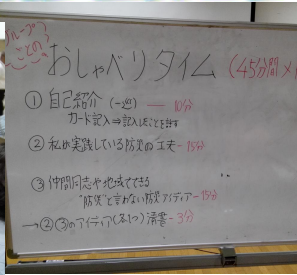 グループごとの
おしゃべりタイム (45分間
① 自己紹介 (一巡) ― 10分
カード記入⇒記入したことを話す
② 私が実践している防災の工夫 - 15分
③ 仲間同志や地域でできる
"防災"と言わない防災アイディア - 15分
→②③のアイディア 清書 - 3分